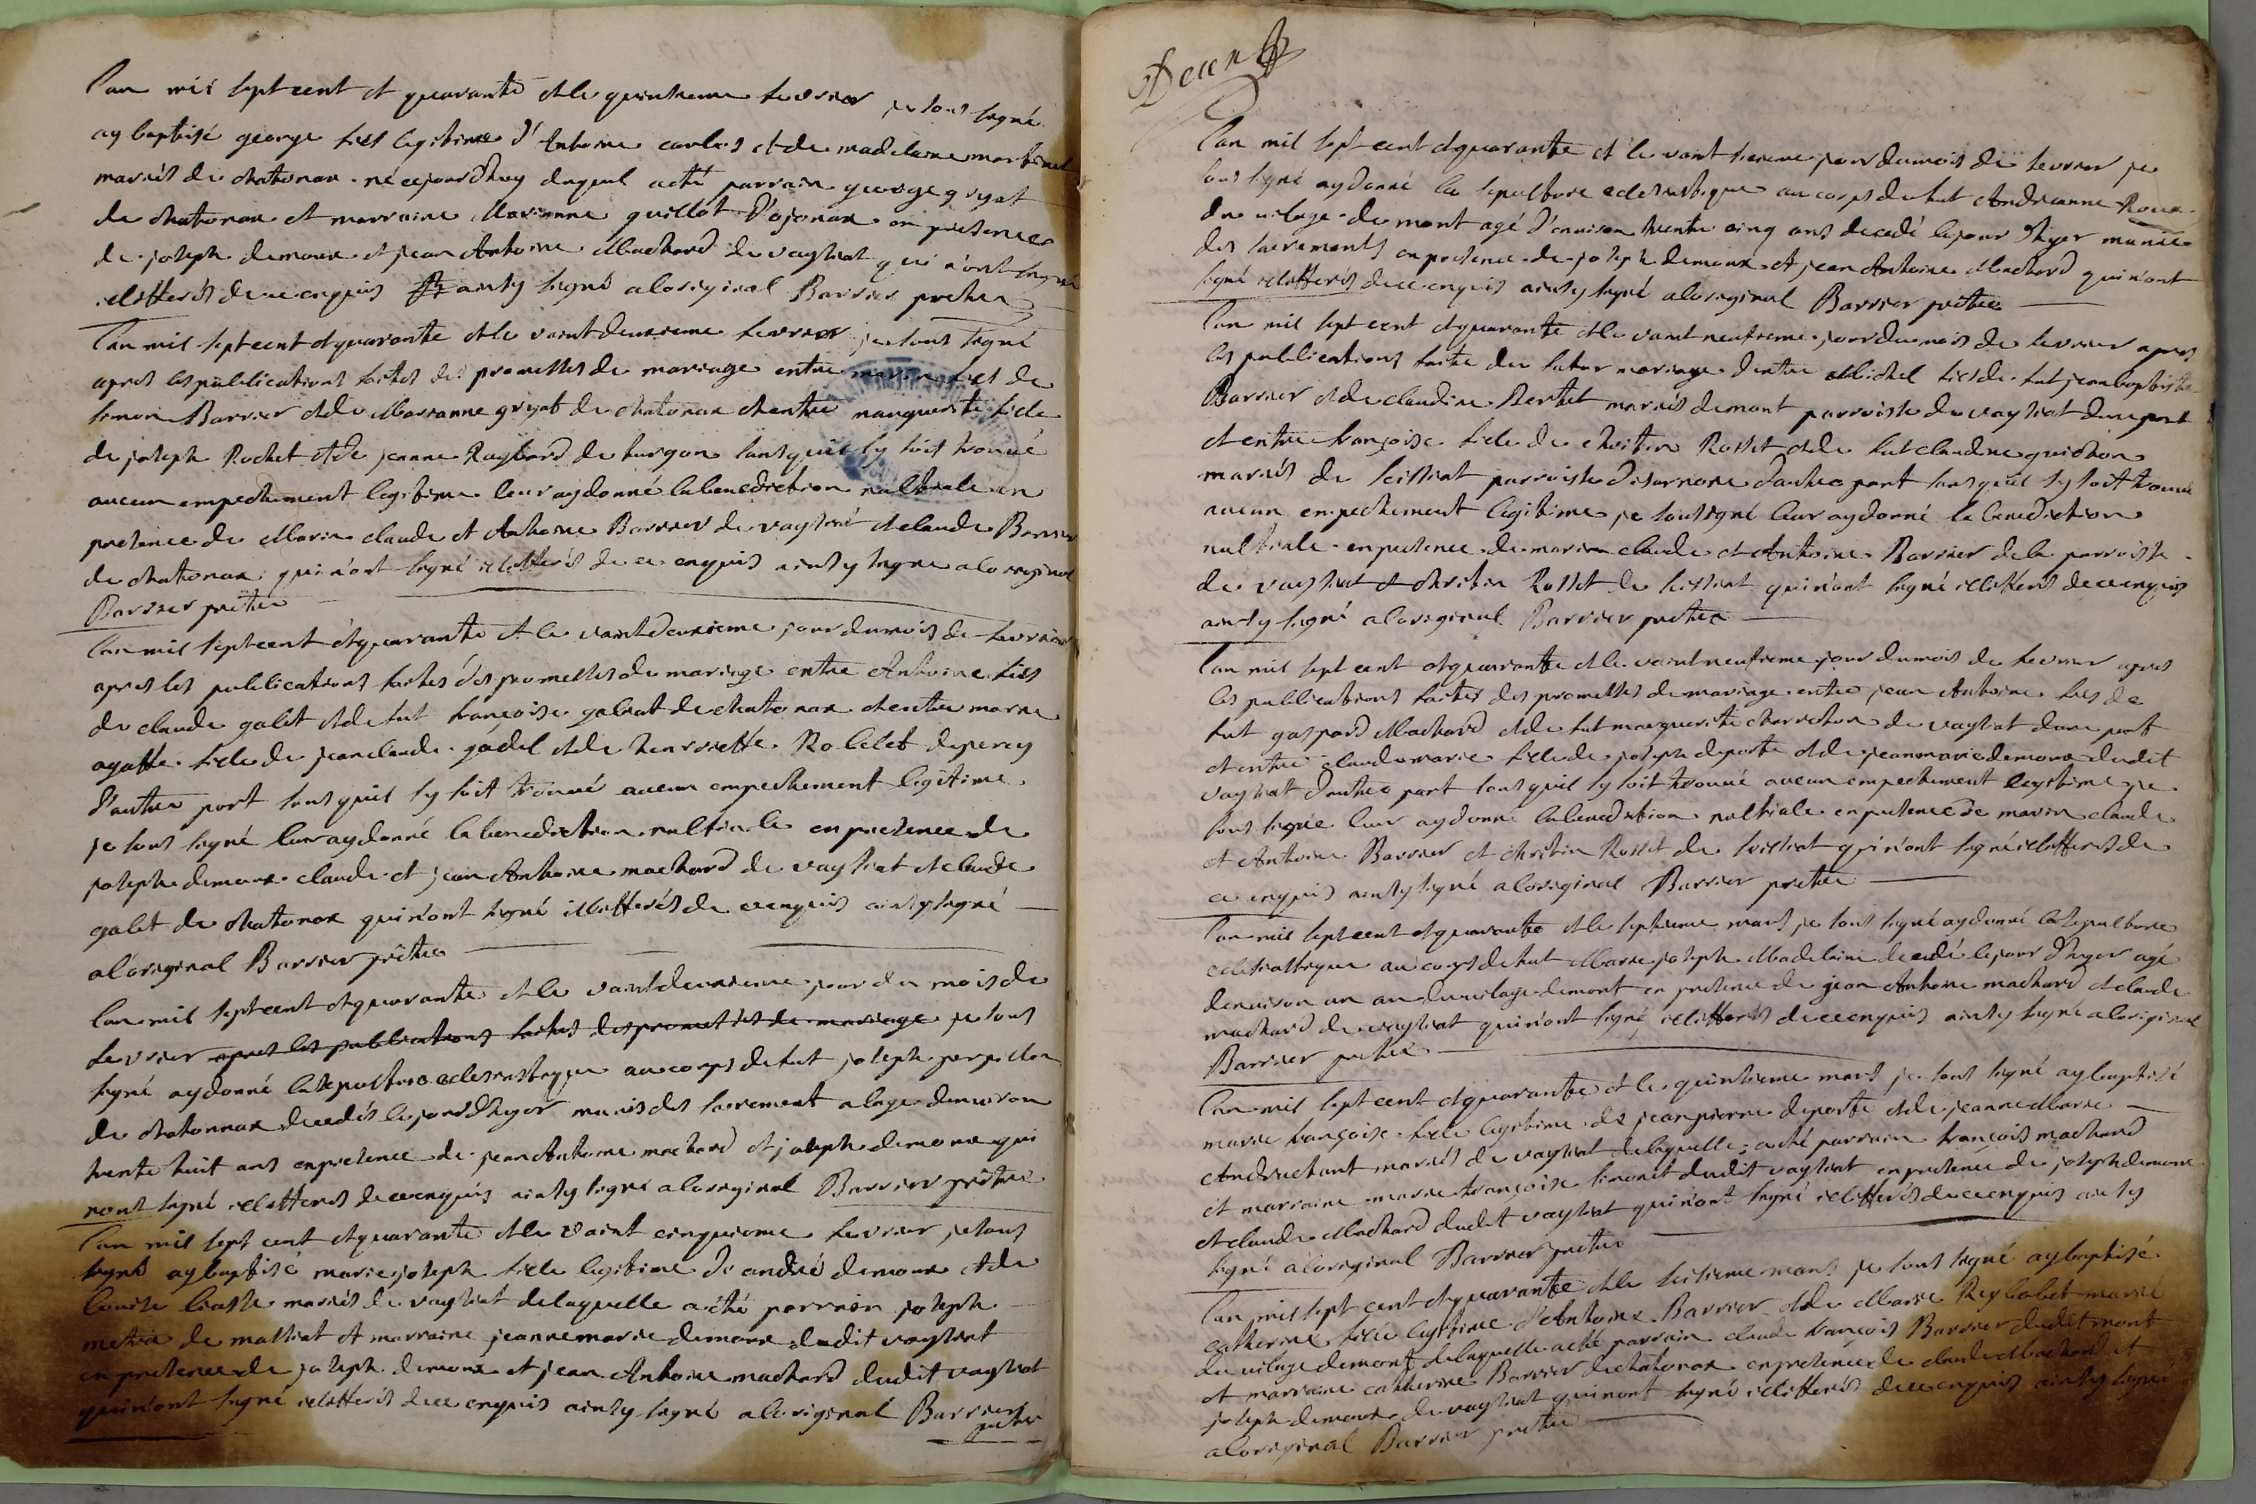 l'an mil sept cent et quarante et le quinsieme fevrier je sous signé
ay baptisé george fils legitime d'Antoine carlos et de madelaine martinel
mariés de chatonax né cejourdhuy duquel a été parrain george grijat
de chatonax et marraine Marianne guillot d'ojonax en presence
de joseph demoux et jean Antoine Machard de vaysiat qui n'ont signé
illitterés de ce enquis ainsy signé a loriginal Barrier pretre
l'an mil sept cent et quarante et le vaint deuxieme fevrier je sous signé
apres les publications faites des promesses de mariage entre marin fils de
simon Barrier et de Marianne grijat de chatonax et entre marguerite fille
de joseph Rochet et de jeanne Raybard de surgon sans quil sy soit trouvé
aucun empechement legitime leur ay donné la benediction nultiale en
presence de Marin claude et Antoine Barrier de vaysiat et claude Barrier
de chatonax qui n'ont signé illitterés de ce enquis ainsy signé a loriginal
Barrier pretre
l'an mil sept cent et quarante et le vaint deuxieme jour du mois de fevrier
apres les publications faites des promesses de mariage entre Antoine fils
de claude galet et de fut françoise galeat de chatonax et entre marie
agathe fille de jean claude gadel et de henriette Robelet deperey
d'autre part sans quil sy soit trouvé aucun empechement legitime
je sous signé leur ay donné la benediction nultiale en presence de
joseph demoux claude et jean Antoine machard de vaysiat et claude
galet de chatonax qui n'ont signé illitterés de ce enquis ainsy signé
a l'original Barrier prêtre
l'an mil sept cent et quarante et le vaint deuxieme jour du mois de
fevrier apres les publications faites des promesses de mariage je sous
signé ay donné la sepulture eclesiastique au corps de fut joseph
de chatonnax decedés le jour d'hyer munis des sacrement a lage denviron
trente huit ans en presence de jean Antoine machard et joseph demoux qui
n'ont signé illitterés de ce enquis ainsy signé a loriginal Barrier prêtre
l'an mil sept cent et quarante et le vaint cinquieme fevrier je sous
signé ay baptisé marie joseph fille legitime de andré demoux et de
louise liasse mariés de vaysiat delaquelle a été parrain joseph
de massiat et marraine jeanne marie demoux dudit vaysiat
en presence de joseph demoux et jean Antoine machard dudit vaysiat
qui n'ont signé illitterés de ce enquis ainsy signé a loriginal Barrier
pretre
l'an mil sept cent et quarante et le vaint sieme jour du mois de fevrier je
sous signé ay donné la sepulture eclesiastique au corps de fut Andreanne Roux
du vilage de mont agé d'enuiron trente cinq ans decedé le jour d'hyer munie
des sacrements en presence de joseph demoux et jean Antoine Machard qui n'ont
signé illitterés de ce enquis ainsy signé a loriginal Barrier prêtre
l'an mil sept cent et quarante et le vaint neufieme jour du mois de fevrier apres
les publications faite du futur mariage d'entre Michel fils de fut jean baptiste
Barrier et de claudine Bertet mariés de mont parroisse de vaysiat dune part
et entre françoise fille de christin Rosset et de fut claudine guichon
mariés de sissiat parroisse d'isernore d'autre part sans quil sy soit trouvé
aucun empechement legitime je sous signé leur ay donné la benediction
nultiale en presence de marin claude et Antoine Barrier de la parroisse
de vaysiat et christin Rosset de sissiat qui n'ont signé illitterés de ce enquis
ainsy signé a loriginal Barrier pretre
l'an mil sept cent et quarante et le vaint neufieme jour du mois de fevrier apres
les publications faites des promesses de mariage entre jean Antoine fils de
fut gaspard Machard et de fut marguerite charreton de vaysiat dune part
et entre claude marie fille de joseph deporte et de jeanne marie demoux dudit
vaysiat d'autre part sans quil sy soit trouvé aucun empechement legitime je
sous signé leur ay donné la benediction nultiale en presence de marin claude
et Antoine Barrier et christin Rosset de sissiat qui n'ont signé illitterés de
ce enquis ainsy signé a loriginal Barrier pretre
l'an mil sept cent et quarante et le septieme mars je sous signé ay donné la sepulture
eclesiastique au corps de fut Marie joseph Madelaine decedé le jour d'hyer agé
denuiron un an du vilage de mont en presence de jean Antoine machard et claude
machard de vaysiat qui n'ont signé illitterés de ce enquis ainsy signé a loriginal
Barrier pretre
l'an mil sept cent et quarante et le quinsieme mars je sous signé ay baptisé
marie françoise fille legitime de jean pierre deporte et de jeanne Marie
Andruchant mariés de vaysiat delaquelle a été parrain françois machard
et marraine marie françoise simonet dudit vaysiat en presence de joseph demoux
et claude Machard dudit vaysiat qui n'ont signé illitterés de ce enquis ainsy
signé a l'original Barrier pretre
l'an mil sept cent et quarante et le seisieme mars je sous signé ay baptisé
catherine fille legitime d'Antoine Barrier et de Marie Reybolet marié
du vilage de mont delaquelle a été parrain claude françois Barrier dudit mont
et marraine catherine Barrier de chatonax en presence de claude Machard et
joseph demoux de vaysiat qui n'ont signé illitterés de ce enquis ainsy signé
a loriginal Barrier pretre